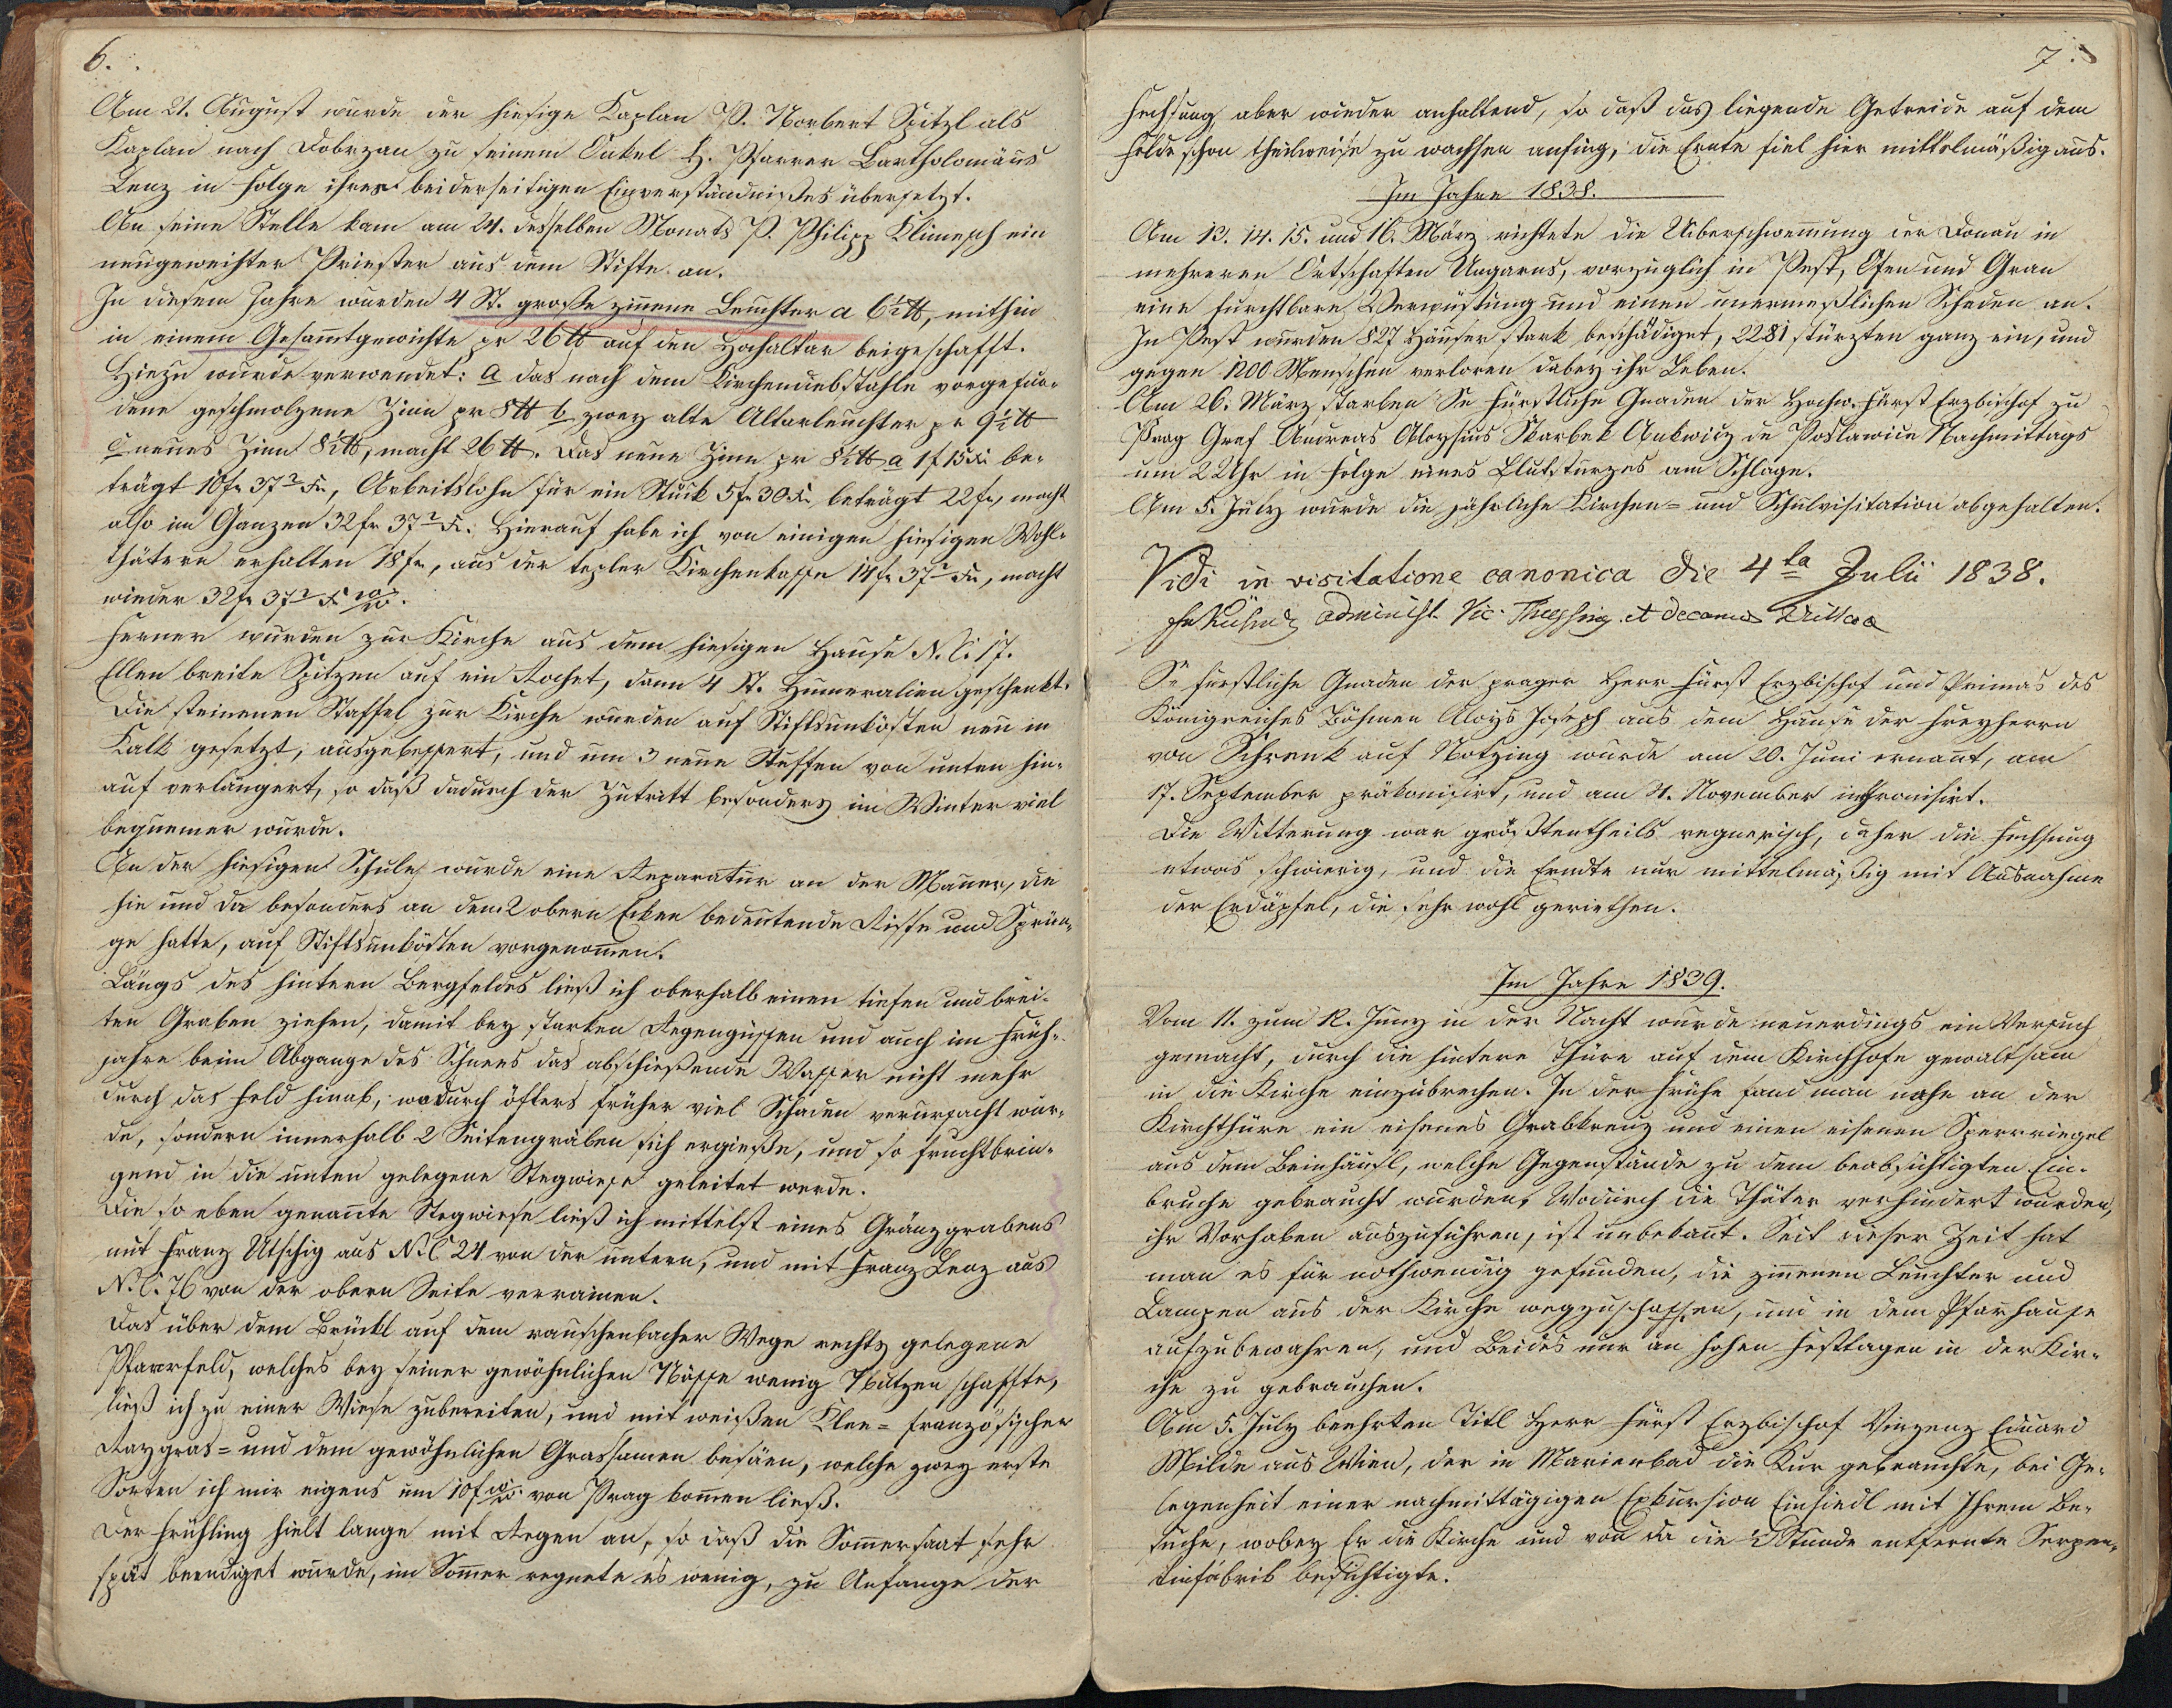 6.
Am 21. August wurde der hiesige Kaplan P. Norbert Spitzl als
Kaplan nach Dobrzan zu seinem Onkel H. Pfarrer Bartholomäus
Lenz in Folge ihres beiderseitigen Einverständnißes übersetzt.
An seine Stelle kam am 24. desselben Monats P. Philipp Klimesch ein
neugeweihter Priester aus dem Stifte an.
In diesem Jahre wurden 4 St. große zinnene Leuchter a 6½ ℔, mithin
in einem Gesam̄tgewichte pr 26 ℔ auf den Hochaltar beigeschafft.
Hiezu wurde verwendet: a das nach dem Kirchendiebstahle vorgefun-
dene geschmolzene Zinn pr 8 ℔ b zwey alte Altarleuchter pr 9½ ℔
c neues Zinn 8½ ℔, macht 26 ℔. Das neue Zinn pr 8½ ℔ a 1f 15 Xr be-
trägt 10 fr 37² Xr, Arbeitslohn für ein Stück 5 fr 30 Xr beträgt 22 fr, macht
also im Ganzen 32 fr 37² Xr. Hierauf habe ich von einigen hiesigen Wohl-
thätern erhalten 18 fr, aus der tepler Kirchenkasse 14 fr 37² Xr, macht
wieder 32 fr 37² Xr
Ferner wurden zur Kirche aus dem hiesigen Hause N.C. 17.
Ellen breite Spitzen auf ein Rochet, dann 4 St. Humeralien geschenkt.
Die steinenen Staffel zur Kirche wurden auf Stiftsunkösten neu in
Kalk gesetzt, ausgebessert, und um 3 neue Stuffen von unten hin-
auf verlängert, so daß dadurch der Zutritt besonders im Winter viel
bequemer wurde.
An der hiesigen Schule wurde eine Reparatur an der Mauer, die
hie und da besonders an den 2 obern Ecken bedeutende Risse und Sprün-
ge hatte, auf Stiftsunkösten vorgenom̄en.
Längs des hintern Bergfeldes ließ ich oberhalb einen tiefen und brei-
ten Graben ziehen, damit bey starken Regengüssen und auch im Früh-
jahre beim Abgange des Schnees das abschießende Wasser nicht mehr
durch das Feld hinab, wodurch öfters früher viel Schaden verursacht wur-
de, sondern innerhalb 2 Seitengräben sich ergieße, und so fruchtbrin-
gend in die unten gelegene Stegwiese geleitet werde.
Die so eben genan̄te Stegwiese ließ ich mittelst eines Gränzgrabens
mit Franz Utschig aus N.C. 24 von der untern, und mit Franz Lenz aus
N.C. 76 von der obern Seite verrainen.
Das über dem Brückl auf dem rauschenbacher Wege rechts gelegene
Pfarrfeld, welches bey seiner gewöhnlichen Nässe wenig Nutzen schaffte,
ließ ich zu einer Wiese zubereiten, und mit weißen Klee- französischer
Raygras- und dem gewöhnlichen Grassamen besäen, welche zwey erste
Sorten ich mir eigens um 10f von Prag kom̄en ließ.
Der Frühling hielt lange mit Regen an, so daß die Som̄ersaat sehr
spät beendiget wurde, im Som̄er regnete es wenig, zu Anfange der
7.
Fechsung aber wieder anhaltend, so daß das liegende Getreide auf dem
Felde schon theilweise zu wachsen anfing, die Ernte fiel hier mittelmäßig aus.
Im Jahre 1838.
Am 13. 14. 15. und 16. März richtete die Uiberschwem̄ung der Donau in
mehreren Ortschaften Ungarns, vorzüglich in Pest, Ofen und Gran
eine furchtbare Verwüstung und einen unermeßlichen Schaden an.
In Pest wurden 827 Häuser stark beschädiget, 2281 stürzten ganz ein, und
gegen 1200 Menschen verloren dabey ihr Leben.
Am 26. März starben Se Fürstliche Gnaden der Hochw. Fürst Erzbischof zu
Prag Graf Andreas Aloysius Skarbek Ankwicz de Poslawice Nachmittags
um 2 Uhr in Folge eines Blutsturzes am Schlage.
Am 5. July wurde die jährliche Kirchen- und Schulvisitation abgehalten.
Vidi in visitatione canonica die 4ta Julii 1838.
administ. Vic. et decanus
Se fürstliche Gnaden der prager Herr Fürst Erzbischof und Primas des
Königreiches Böhmen Aloys Joseph aus dem Hause der Freyherrn
von Schrenk auf Notzing wurde am 20. Juni ernan̄t, am
17. September präkonisirt, und am 4. November inthronisirt.
Die Witterung war größtentheils regnerisch, daher die Fechsung
etwas schwierig, und die Erndte nur mittelmäßig mit Ausnahme
der Erdäpfel, die sehr wohl geriethen.
Im Jahre 1839.
Vom 11. zum 12. Juny in der Nacht wurde neuerdings ein Versuch
gemacht, durch die hintere Thüre auf dem Kirchhofe gewaltsam
in die Kirche einzubrechen. In der Frühe fand man nahe an der
Kirchthüre ein eisenes Grabkreuz und einen eisenen Sperrriegel
aus dem Beinhäusl, welche Gegenstände zu dem beabsichtigten Ein-
bruche gebraucht wurden. Wodurch die Thäter verhindert wurden,
ihr Vorhaben auszuführen, ist unbekan̄t. Seit dieser Zeit hat
man es für nothwendig gefunden, die zinnenen Leuchter und
Lampen aus der Kirche wegzuschaffen, und in dem Pfarrhause
aufzubewahren, und Beides nur an hohen Festtagen in der Kir-
che zu gebrauchen.
Am 5. July beehrten Titl Herr Fürst Erzbischof Vinzenz Eduard
Milde aus Wien, der in Marienbad die Kur gebrauchte, bei Ge-
legenheit einer nachmittägigen Exkursion Einsiedl mit Ihrem Be-
suche, wobey Er die Kirche und von da die Stunde entfernte Serpen-
tinfabrik besichtigte.